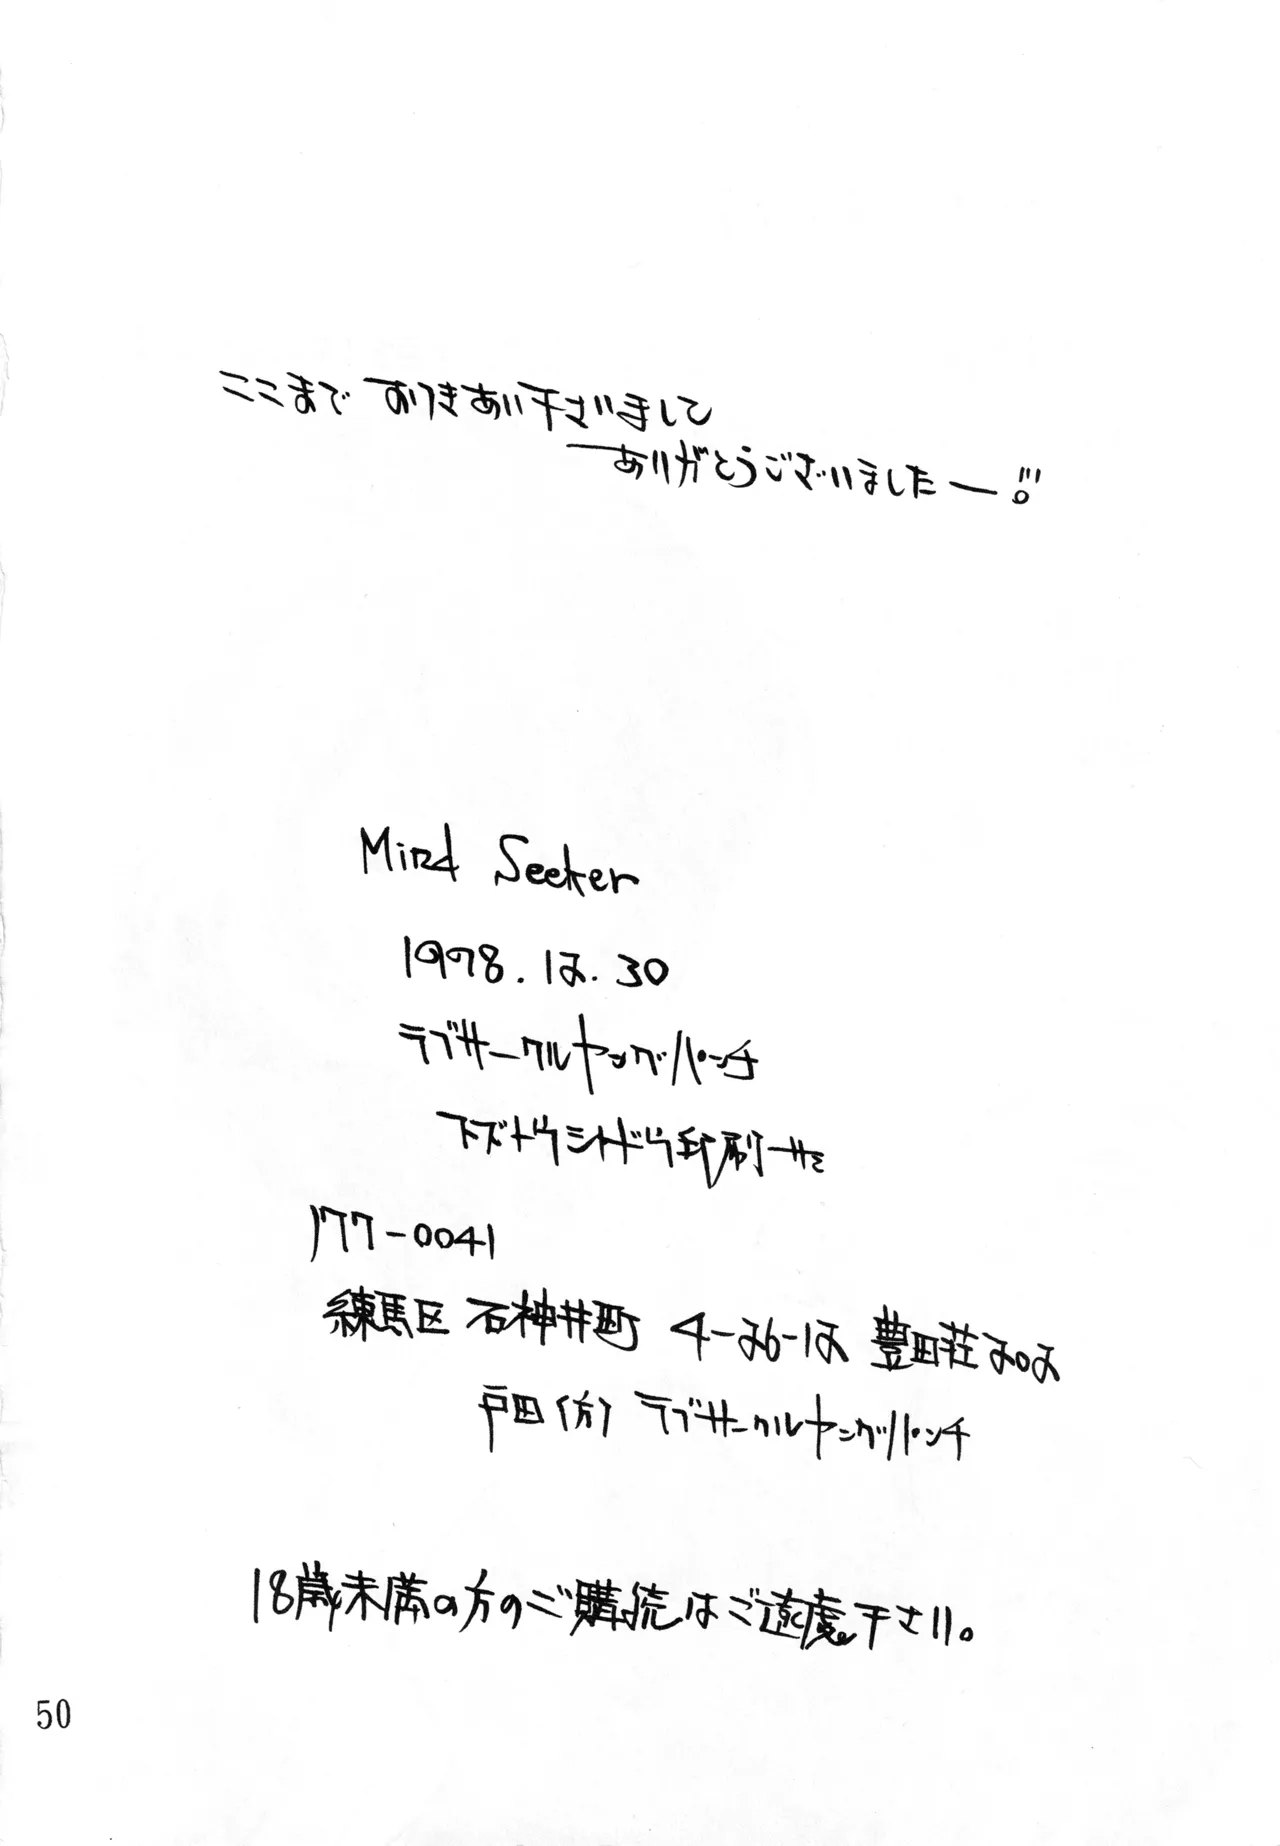 ここまでおつきあい下さいまして
ありがとうございましたー!!!
Mind Seeker
1998.12.30
ラブサークルヤングパンチ
177-0041
練馬区 石神井町 4-26-12 豊田荘202
戸田(方) ラブサークルヤングパンチ
18歳未満の方のご購読はご遠慮下さい。
50